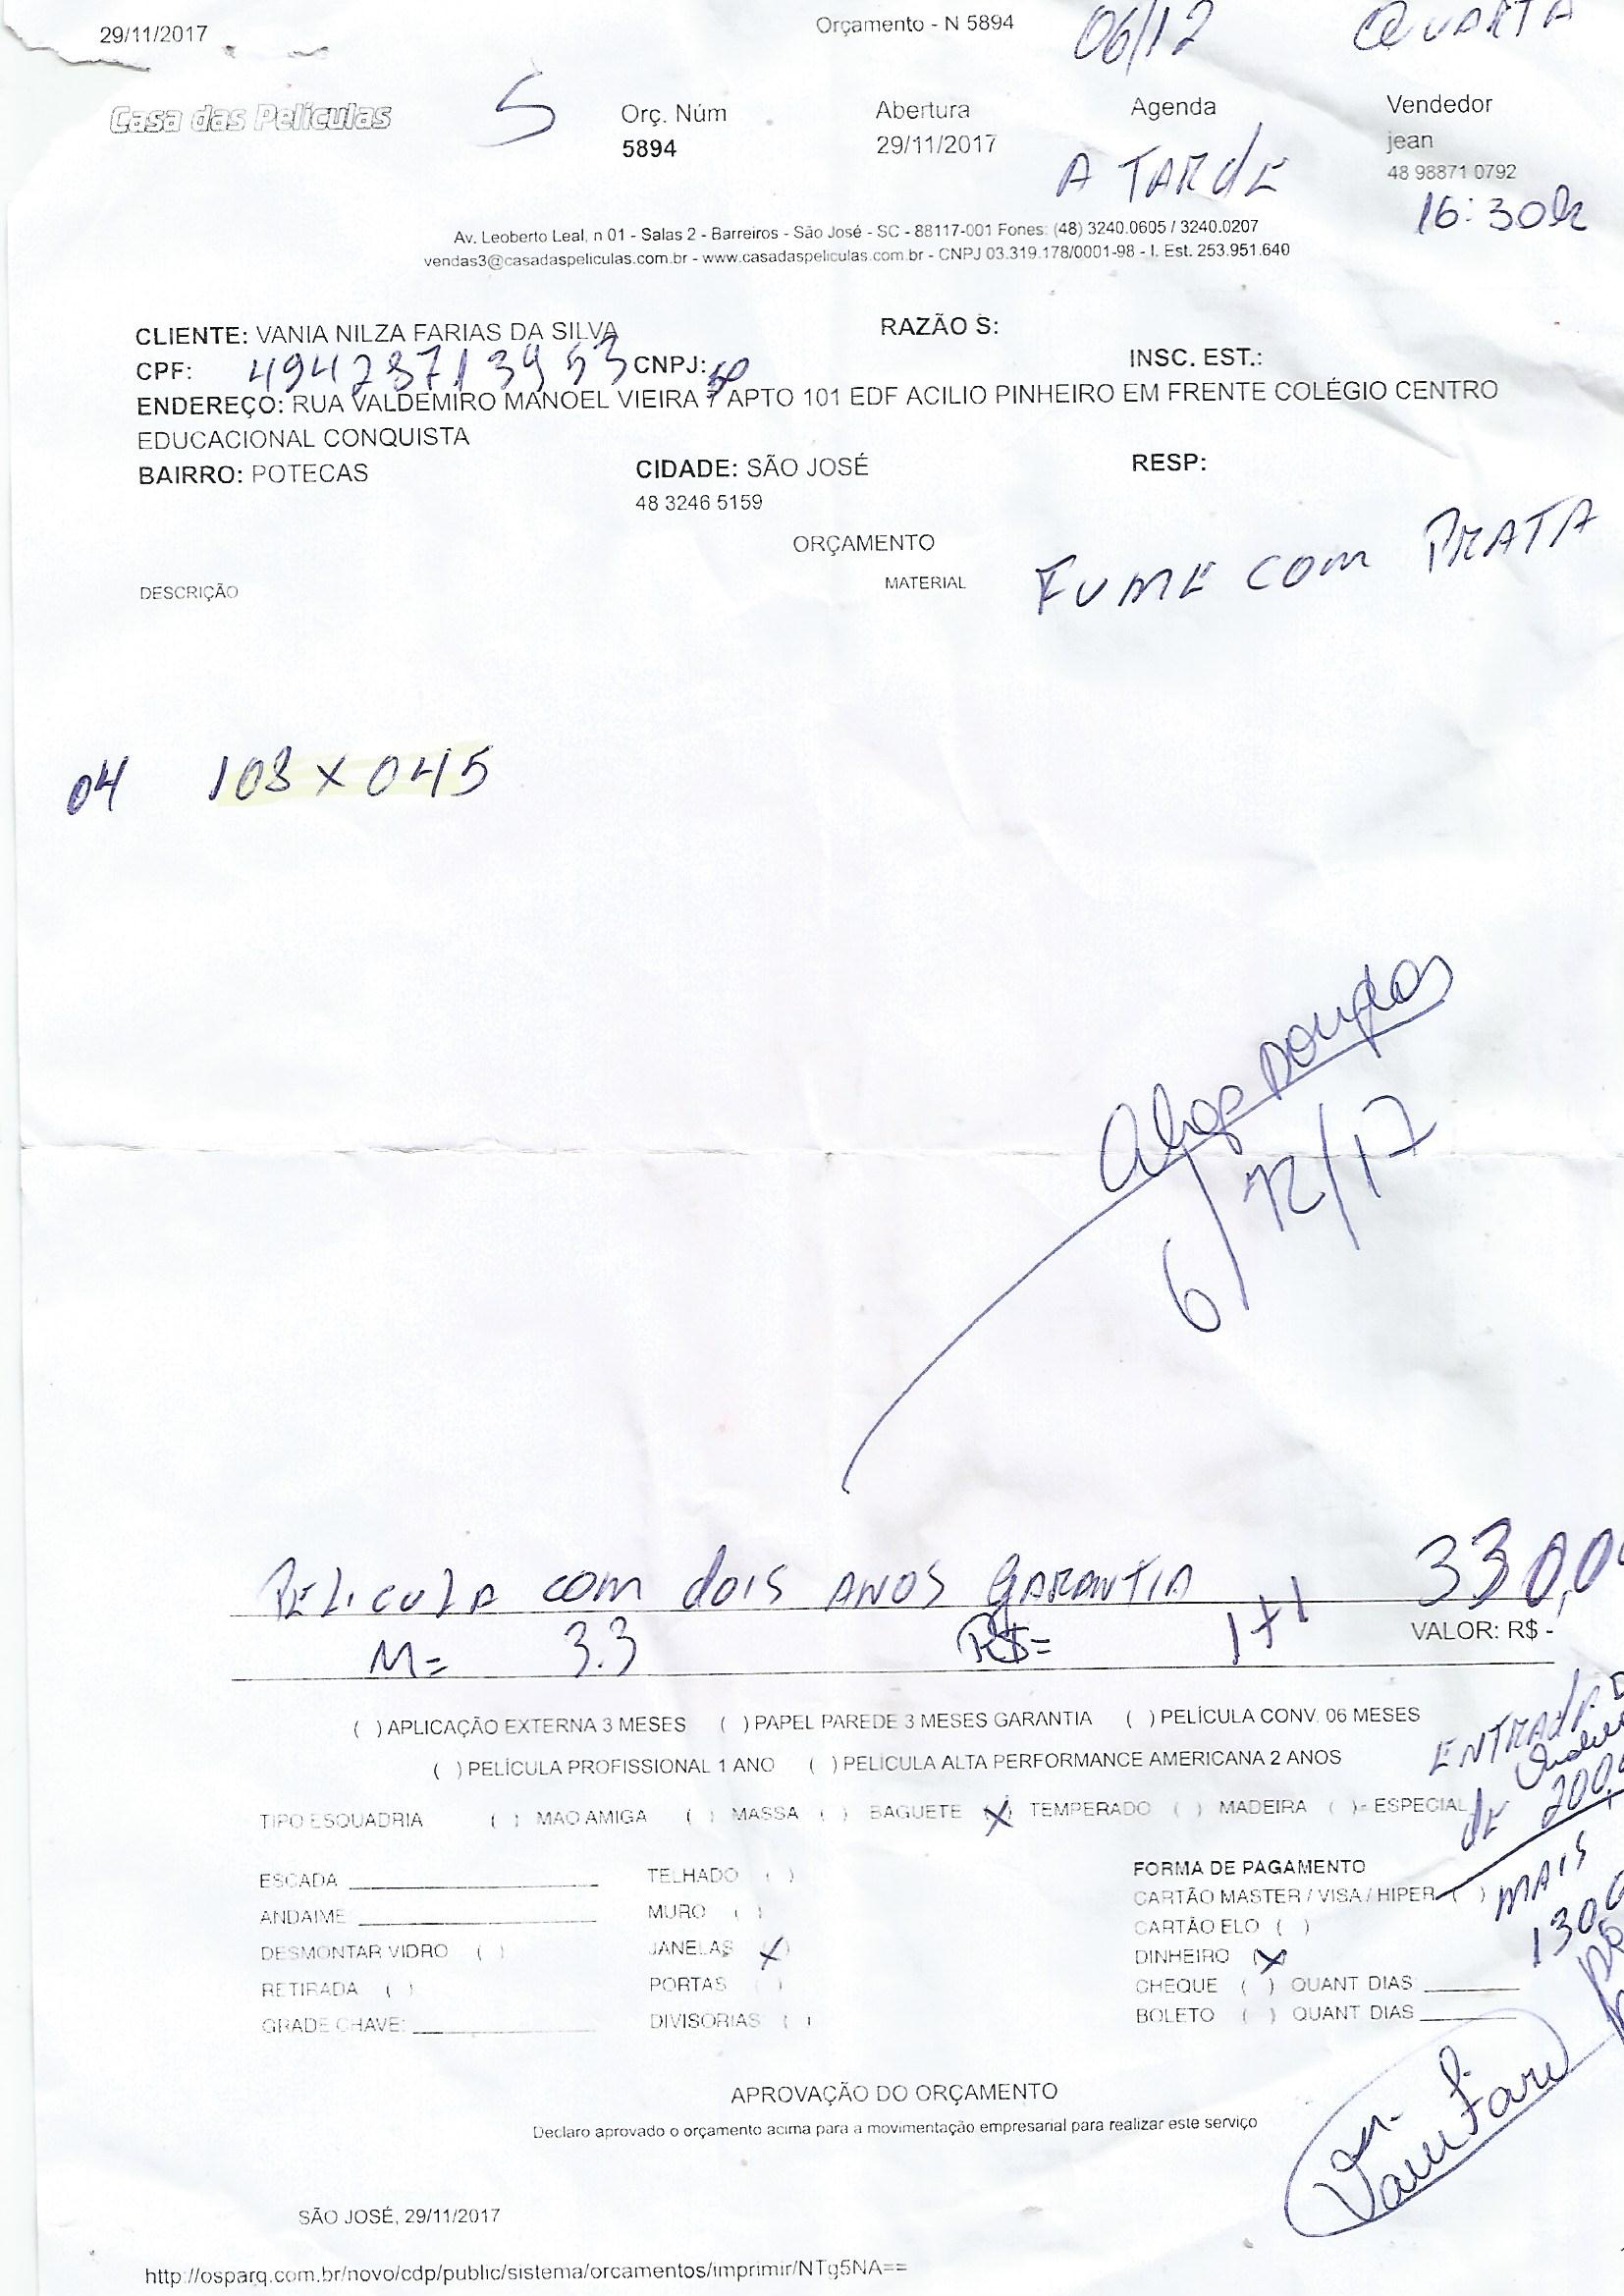 29/11/2017 Orçamento - N 5894 06/12 QUARTA
Casa das Películas 5 Orç. Núm Abertura Agenda Vendedor
5894 29/11/2017 A TARDE jean
48 98871 0792
16:30h
Av. Leoberto Leal, n 01 - Salas 2 - Barreiros - São José - SC - 88117-001 Fones: (48) 3240.0605 / 3240.0207
vendas3@casadaspeliculas.com.br - www.casadaspeliculas.com.br - CNPJ 03.319.178/0001-98 - I. Est. 253.951.640
CLIENTE: VANIA NILZA FARIAS DA SILVA RAZÃO S:
CPF: 49428713953 CNPJ: INSC. EST.:
ENDEREÇO: RUA VALDEMIRO MANOEL VIEIRA APTO 101 EDF ACILIO PINHEIRO EM FRENTE COLÉGIO CENTRO
EDUCACIONAL CONQUISTA
BAIRRO: POTECAS CIDADE: SÃO JOSÉ RESP:
48 3246 5159
ORÇAMENTO
DESCRIÇÃO MATERIAL FUME COM PRATA
04 108 X 045
6/12/17
PELICULA COM DOIS ANOS GARANTIA 330,0
M= 3.3 R$= 1+1 VALOR: R$ -
( ) APLICAÇÃO EXTERNA 3 MESES ( ) PAPEL PAREDE 3 MESES GARANTIA ( ) PELÍCULA CONV. 06 MESES
( ) PELÍCULA PROFISSIONAL 1 ANO ( ) PELICULA ALTA PERFORMANCE AMERICANA 2 ANOS
ENTRADA
DE 200,
TIPO ESQUADRIA ( ) MAO AMIGA ( ) MASSA ( ) BAGUETE (X) TEMPERADO ( ) MADEIRA ( )- ESPECIAL
MAIS
130
ESCADA TELHADO ( ) FORMA DE PAGAMENTO
ANDAIME MURO ( ) CARTÃO MASTER / VISA / HIPER ( )
CARTÃO ELO ( )
DESMONTAR VIDRO ( ) JANELAS (X) DINHEIRO (X)
RETIRADA ( ) PORTAS ( ) CHEQUE ( ) QUANT DIAS
GRADE CHAVE: DIVISORIAS ( ) BOLETO ( ) QUANT DIAS
APROVAÇÃO DO ORÇAMENTO
Declaro aprovado o orçamento acima para a movimentação empresarial para realizar este serviço
SÃO JOSÉ, 29/11/2017
http://osparq.com.br/novo/cdp/public/sistema/orcamentos/imprimir/NTg5NA==